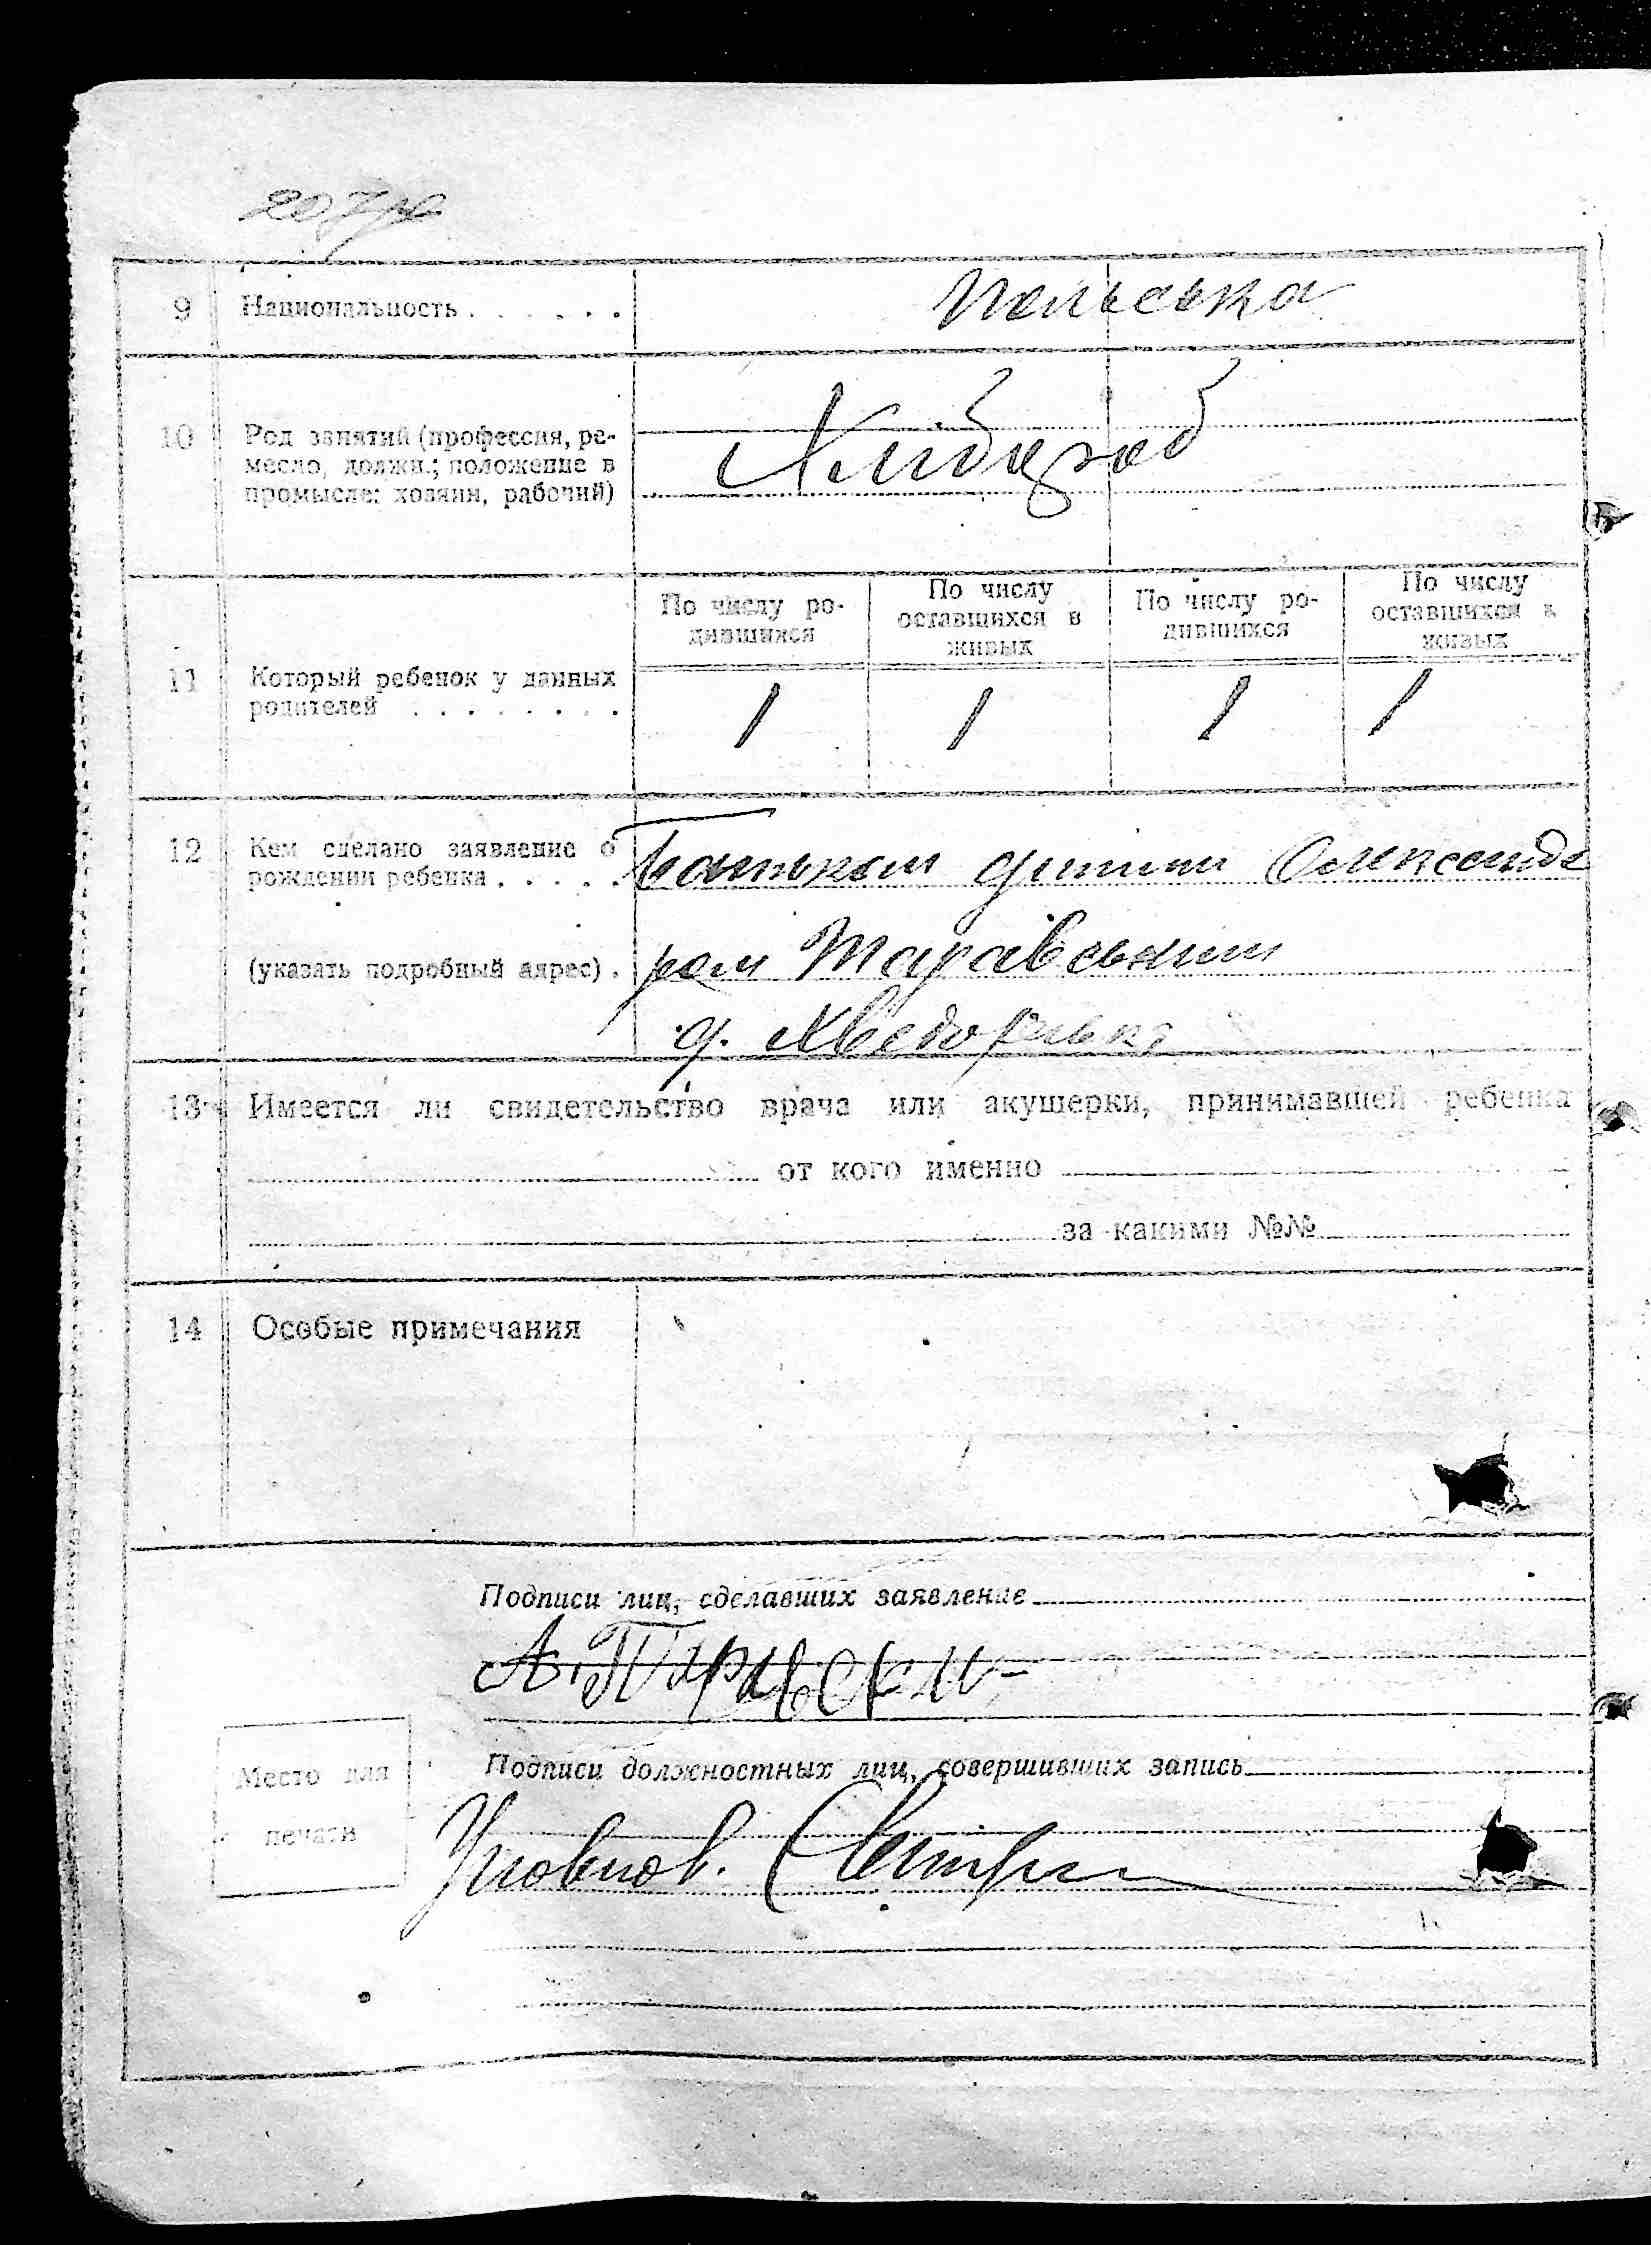 9 Национальность . . . . . . польська
10 Род занятий (профессия, ре-
месло, должн.; положение в
промысле: хозяин, рабочий)
Хлібороб
По числу ро-
дившихся
По числу
оставшихся в
живых
По числу ро-
дившихся
По числу
оставшихся в
живых
11 Который ребенок у данных
родителей . . . . . . . .
1 1 1 1
12 Кем сделано заявление о
рождении ребенка . . . . .
Батьком дитини Олександ
(указать подробный адрес) . ром Таравським
13 Имеется ли свидетельство врача или акушерки, принимавшей ребенка
от кого именно
за какими №№
14 Особые примечания
Подписи лиц, сделавших заявление
Подписи должностных лиц, совершивших запись
Место для
печати
Уповнов.